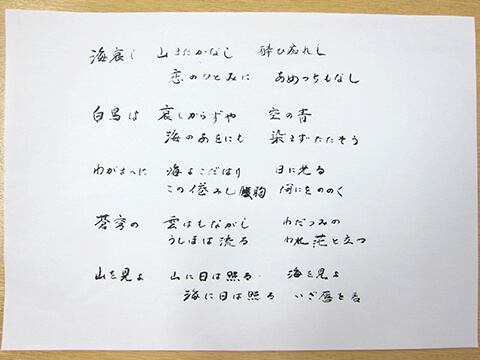 海哀し 山またかなし 酔ひ痴れし
恋のひとみに あめつちもなし
白鳥は 哀しからずや 空の青
海のあをにも 染まずただよう
わがまへに 海よこたはり 日に光る
この倦みし 胸 何にをののく
蒼穹の 雲はもながし わだつみの
うしほは流る われ茫と立つ
山を見よ 山に日は照る 海を見よ
海に日は照る いざ唇を君